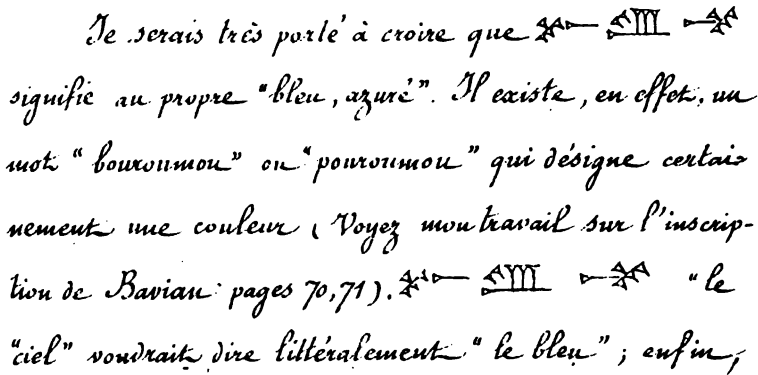 Je serais très porté à croire que
signifie au propre "bleu, azuré". Il existe, en effet, un
mot "bouroumou" ou "pouroumou" qui désigne certai-
nement une couleur (Voyez mon travail sur l'inscrip-
tion de Bavian: pages 70,71). "le
"ciel" voudrait dire littéralement "le bleu"; enfin,